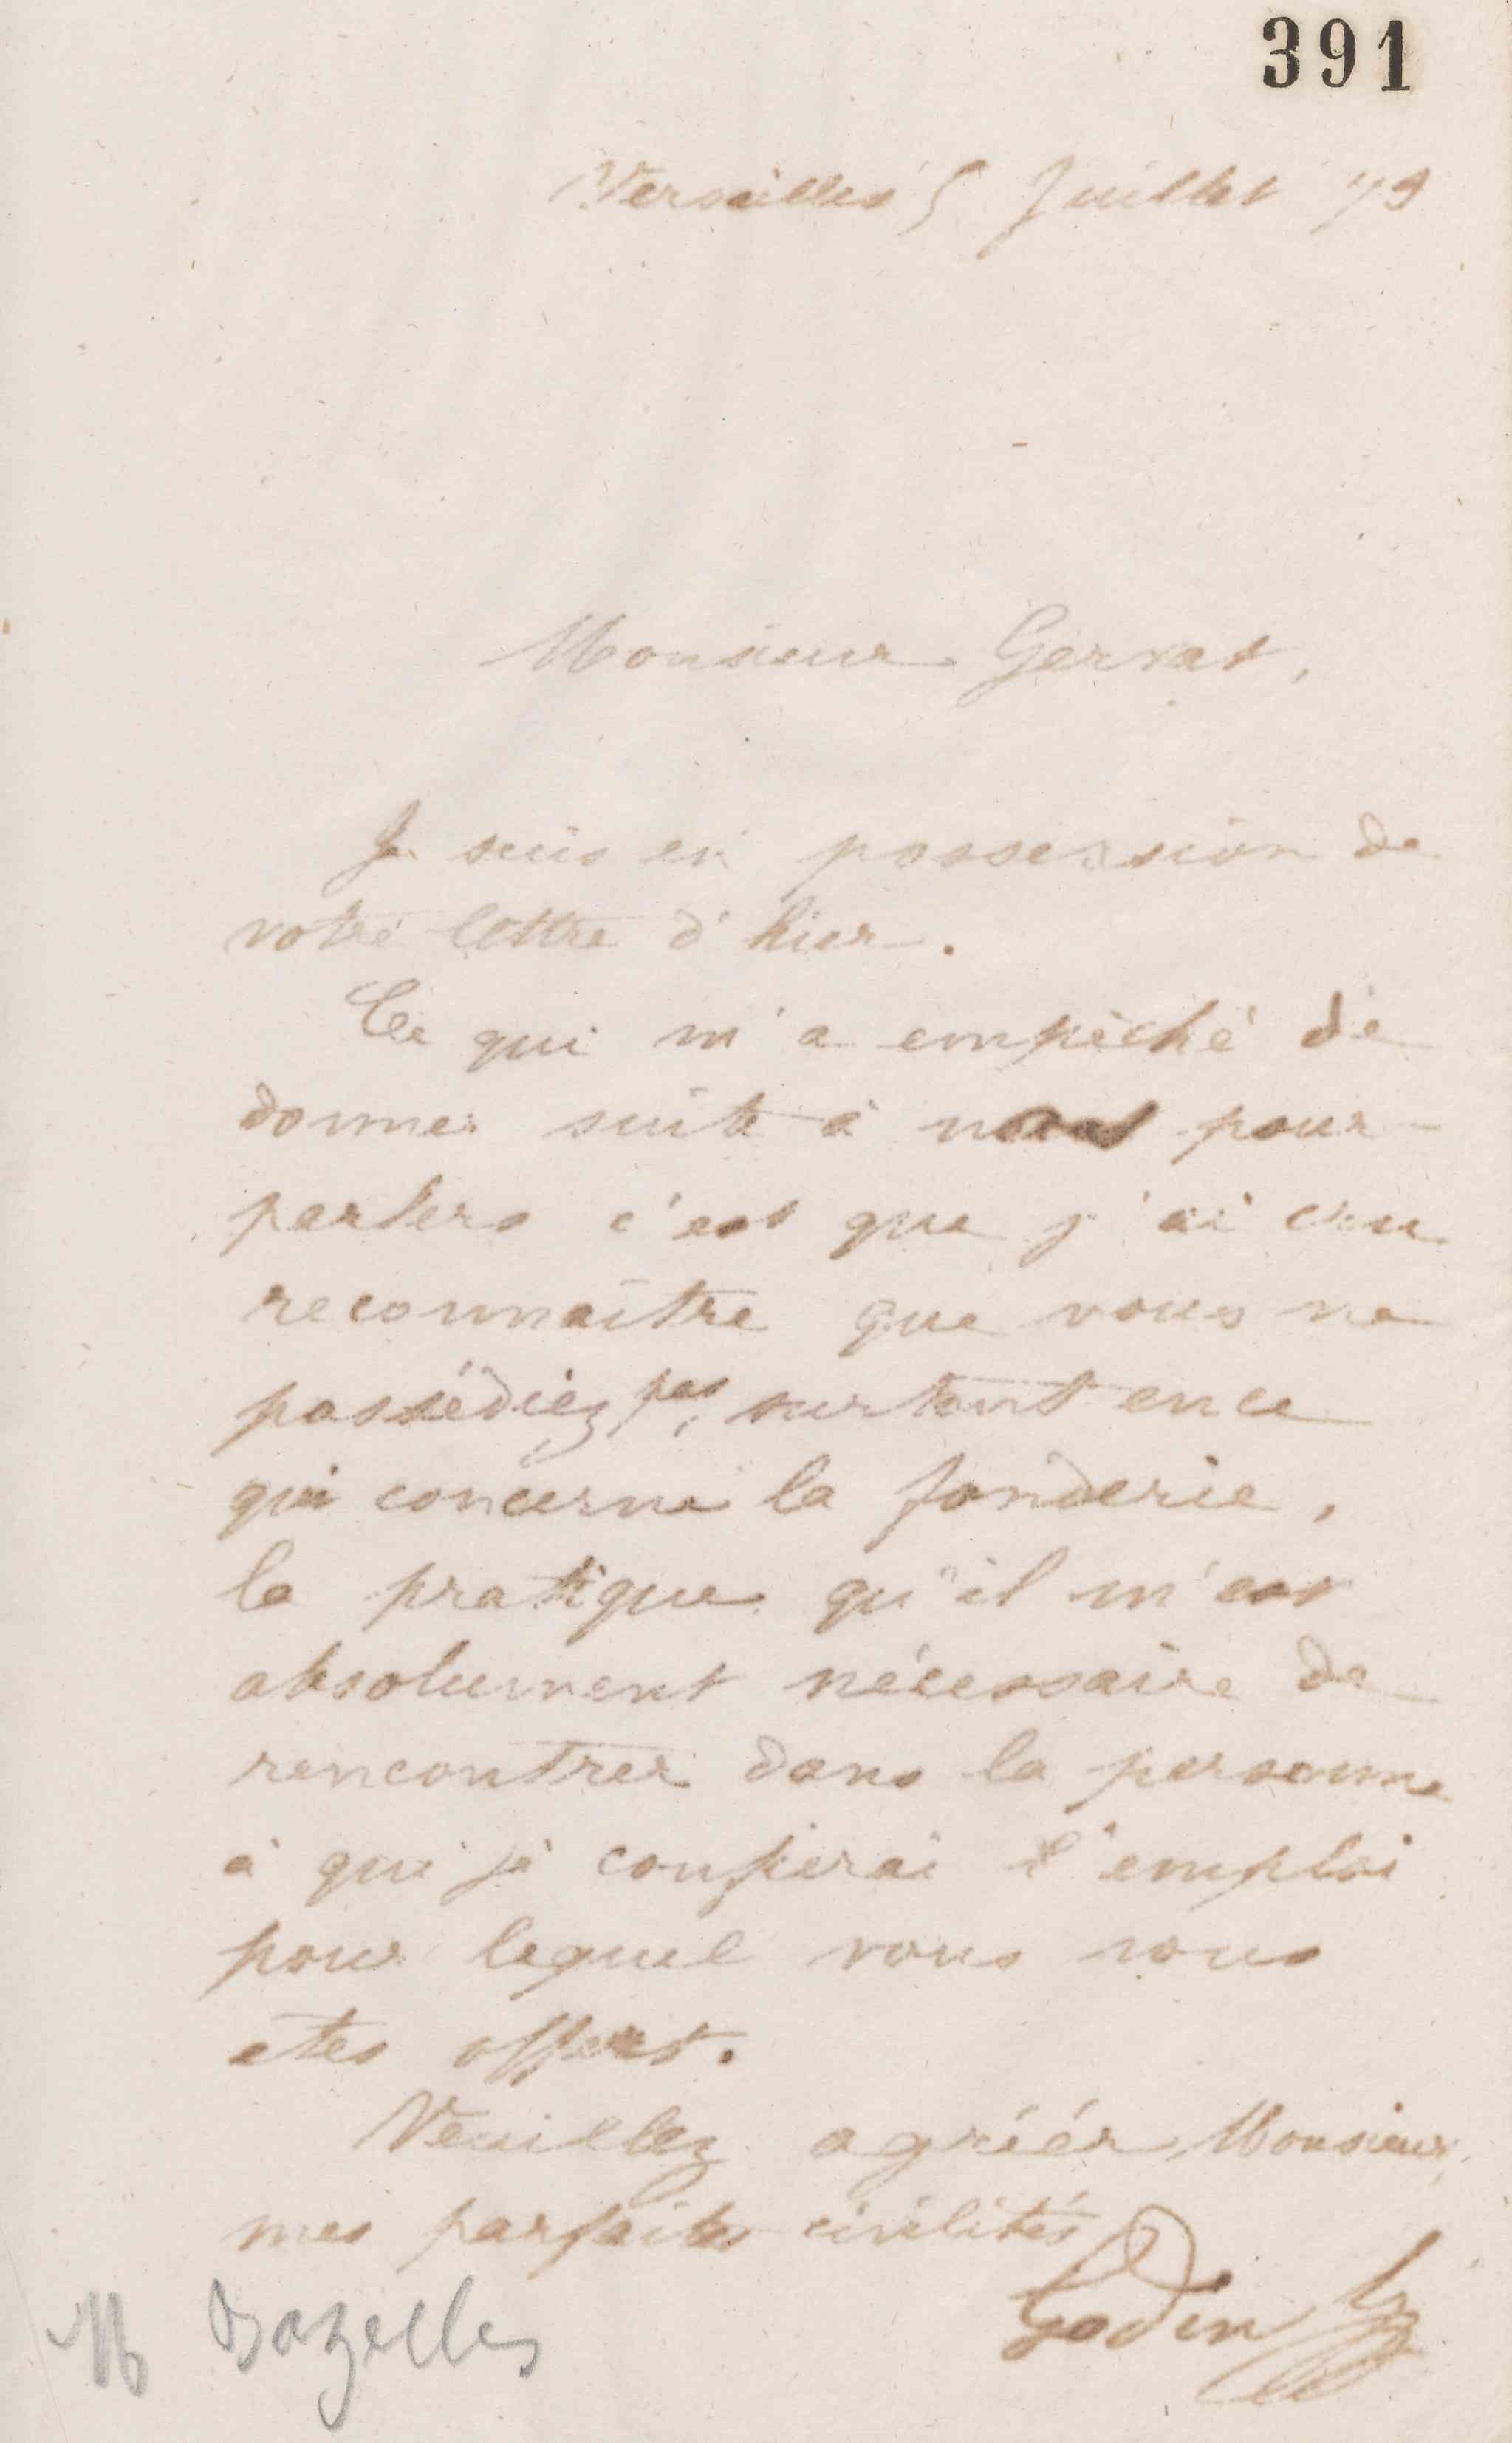 391
Versailles 5 Juillet 79
Monsieur Gervat,
Je suis en possession de
votre lettre d'hier.
Ce qui m'a empêché de
donner suite à nos pour-
parlers c'est que j'ai cru
reconnaître que vous ne
possédiez pas, surtout en ce
qui concerne la fonderie,
la pratique qu'il m'est
absolument nécessaire de
rencontrer dans la personne
à qui je confierai l'emploi
pour lequel vous vous
êtes offert.
Veuillez agréer, Monsieur,
mes parfaites civilités
Godin
M Bazeilles